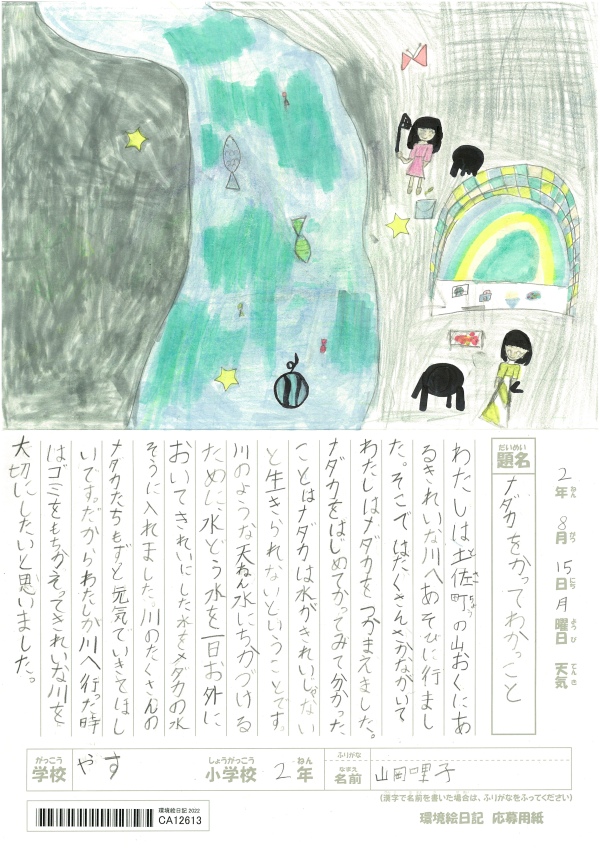 2年 8月 15日 月曜日 天気
ねん がつ にち ようび てんき
題名 メダカをかってわかっこと
だいめい
わたしは土佐町の山おくにあ
るきれいな川へあそびに行まし
た。そこではたくさんさかながいて
わたしはメダカをつかまえました。
メダカをはじめてかってみて分かった
ことはメダカは水がきれいじゃない
と生きられないということです。
川のような天ねん水にちかづける
ために、水どう水を一日お外に
おいてきれいにした水をメダカの水
そうに入れました。川のたくさんの
メダカたちもずっと元気でいきてほし
いです。だからわたしが川へ行った時
はゴミをもちかえってきれいな川を
大切にしたいと思いました。
がっこう しょうがっこう ねん ふりがな
学校 やす 小学校 2年 名前 山田哩子
なまえ
(漢字で名前を書いた場合は、ふりがなをふってください)
環境絵日記 2022
CA12613
環境絵日記 応募用紙